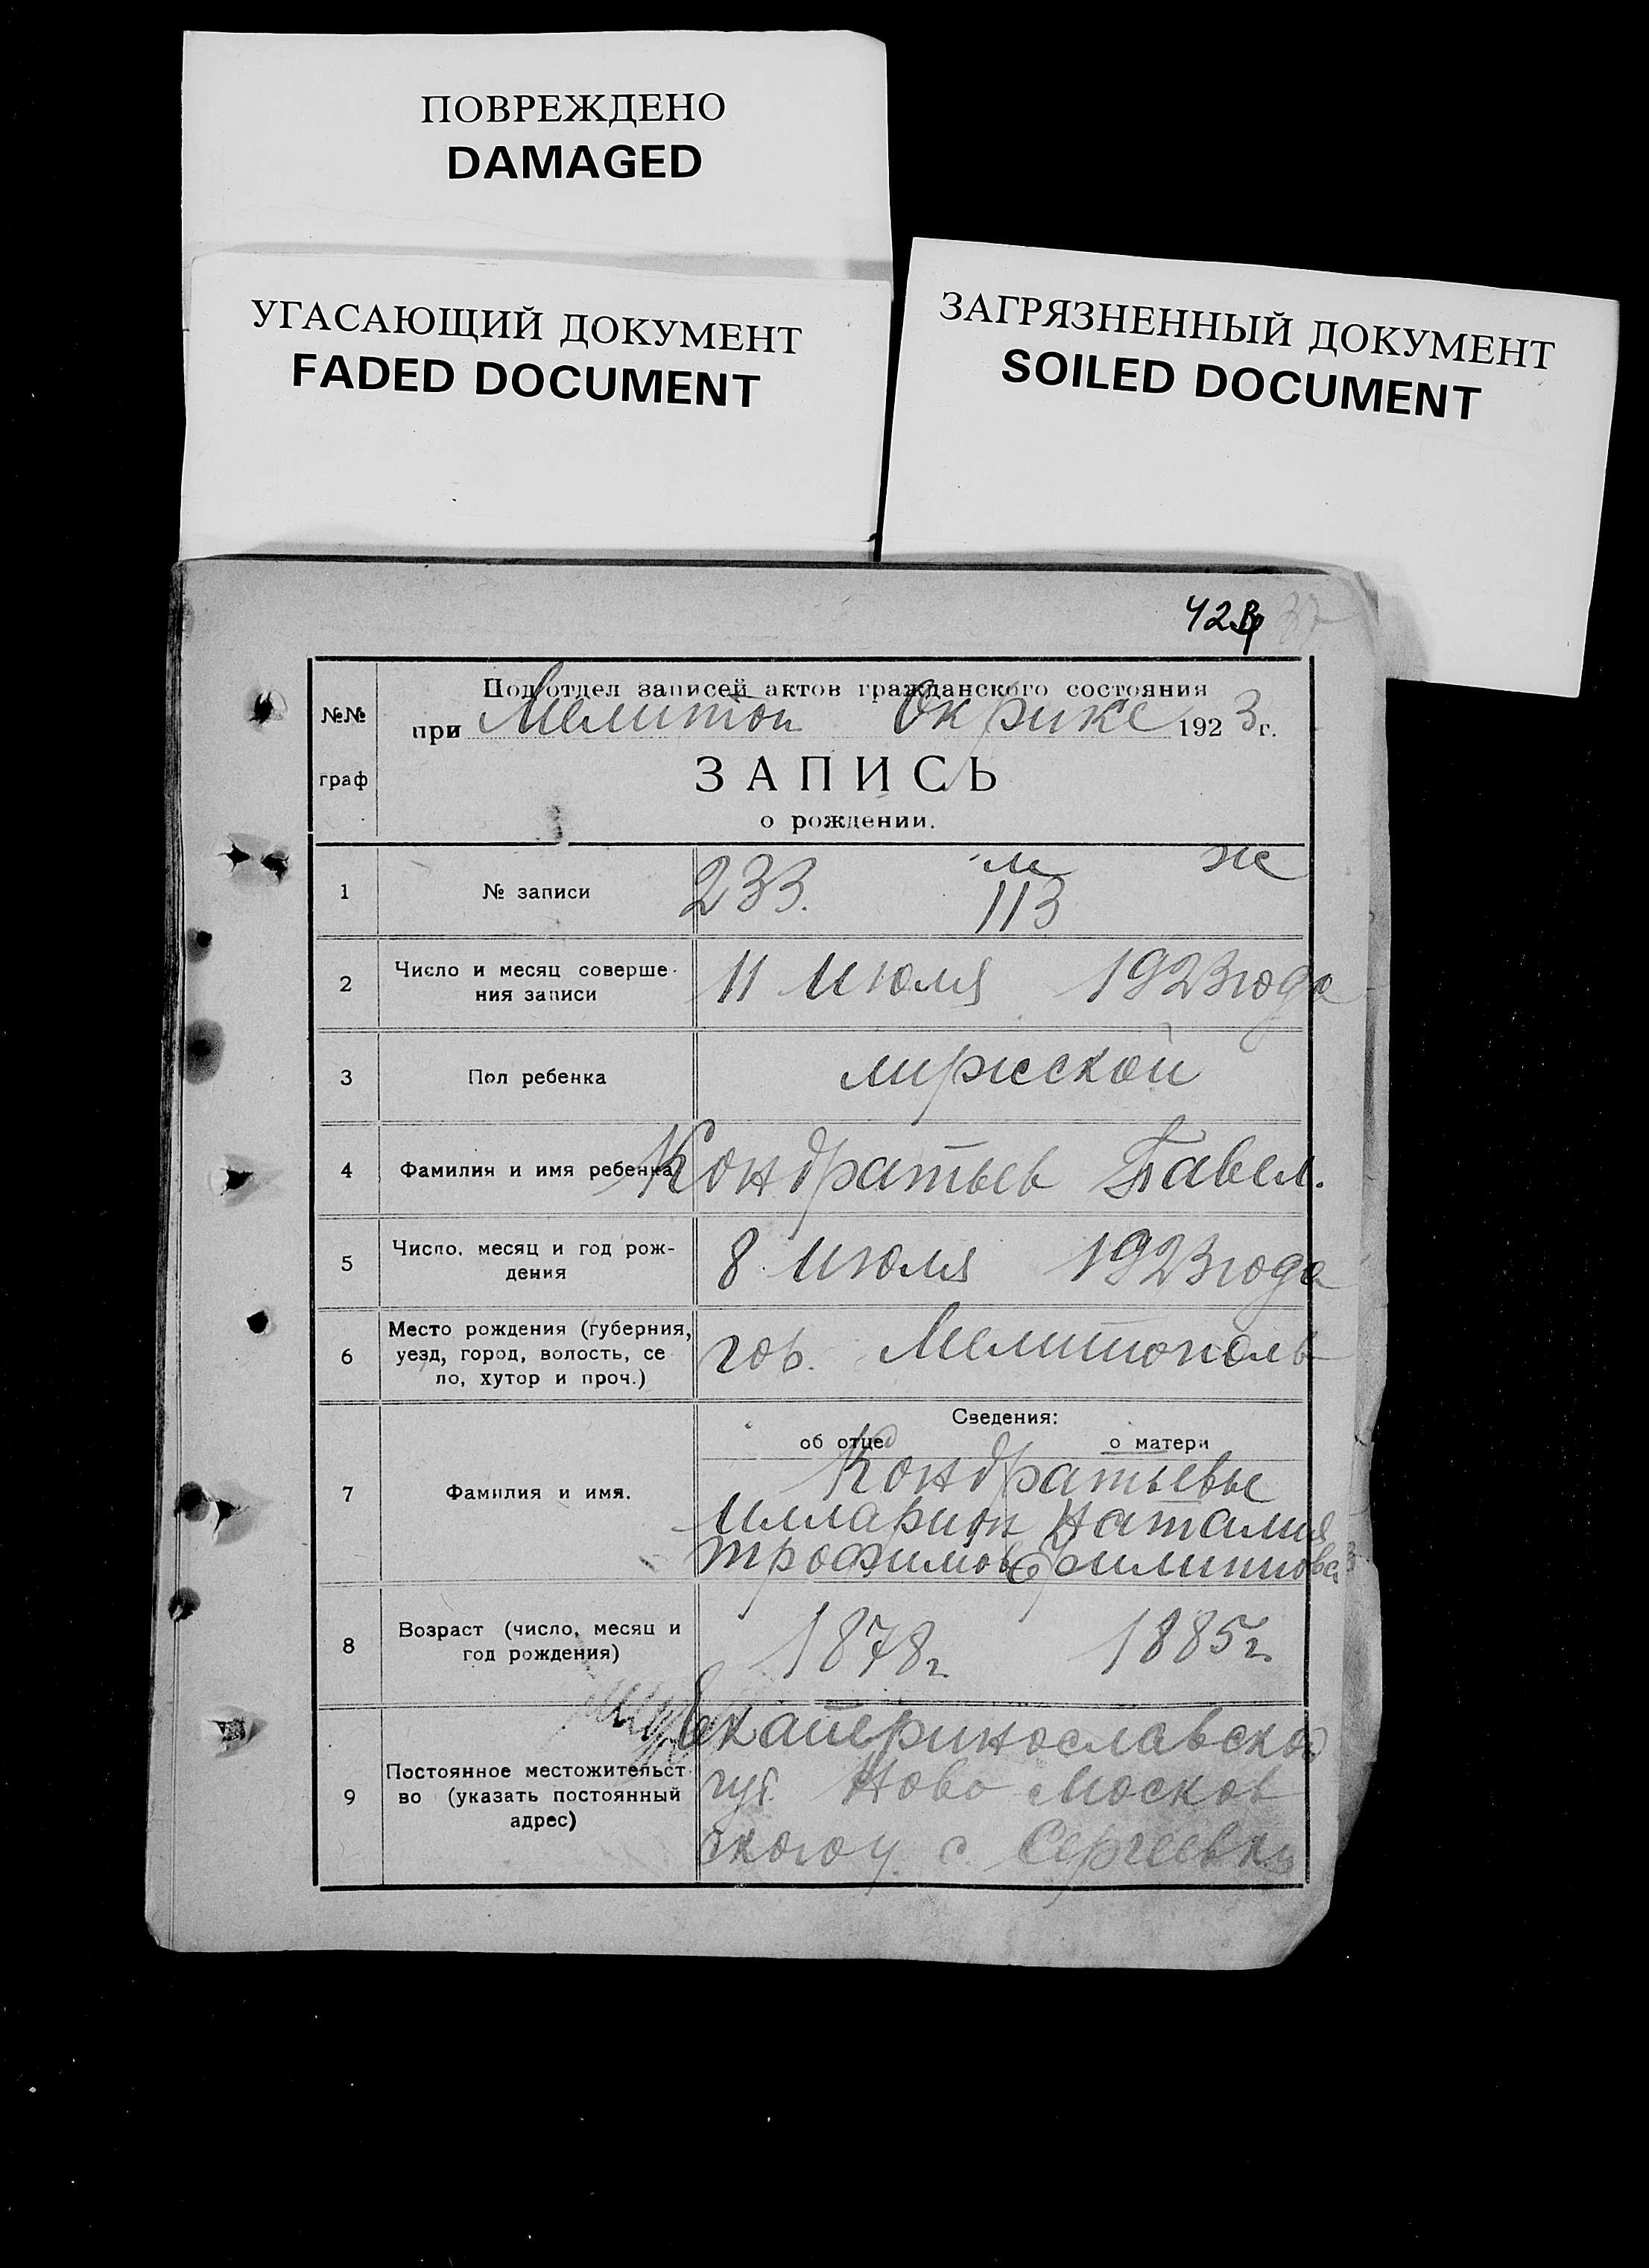 ПОВРЕЖДЕНО
DAMAGED
УГАСАЮЩИЙ ДОКУМЕНТ
FADED DOCUMENT
ЗАГРЯЗНЕННЫЙ ДОКУМЕНТ
SOILED DOCUMENT
№№ граф
Подотдел записей актов гражданского состояния
при Мелитоп Окрике 1923 г.
ЗАПИСЬ
о рождении.
1 № записи 233. м ж
113
2 Число и месяц соверше-
ния записи
11 июля 1923 года
3 Пол ребенка мужской
4 Фамилия и имя ребенка Кондратьев Павел.
5 Число, месяц и год рож-
дения
8 июля 1923 года
6 Место рождения (губерния,
уезд, город, волость, се
ло, хутор и проч.)
гор. Мелитополь
Сведения:
об отце о матери
7 Фамилия и имя.
Кондратьевы
Илларион Наталия
Трофимов Филиппова
8 Возраст (число, месяц и
год рождения)
1878 г. 1885 г.
9 Постоянное местожительст
во (указать постоянный
адрес)
Екатеринославской
губ. Ново Москов
ского у. с. Сергеевки